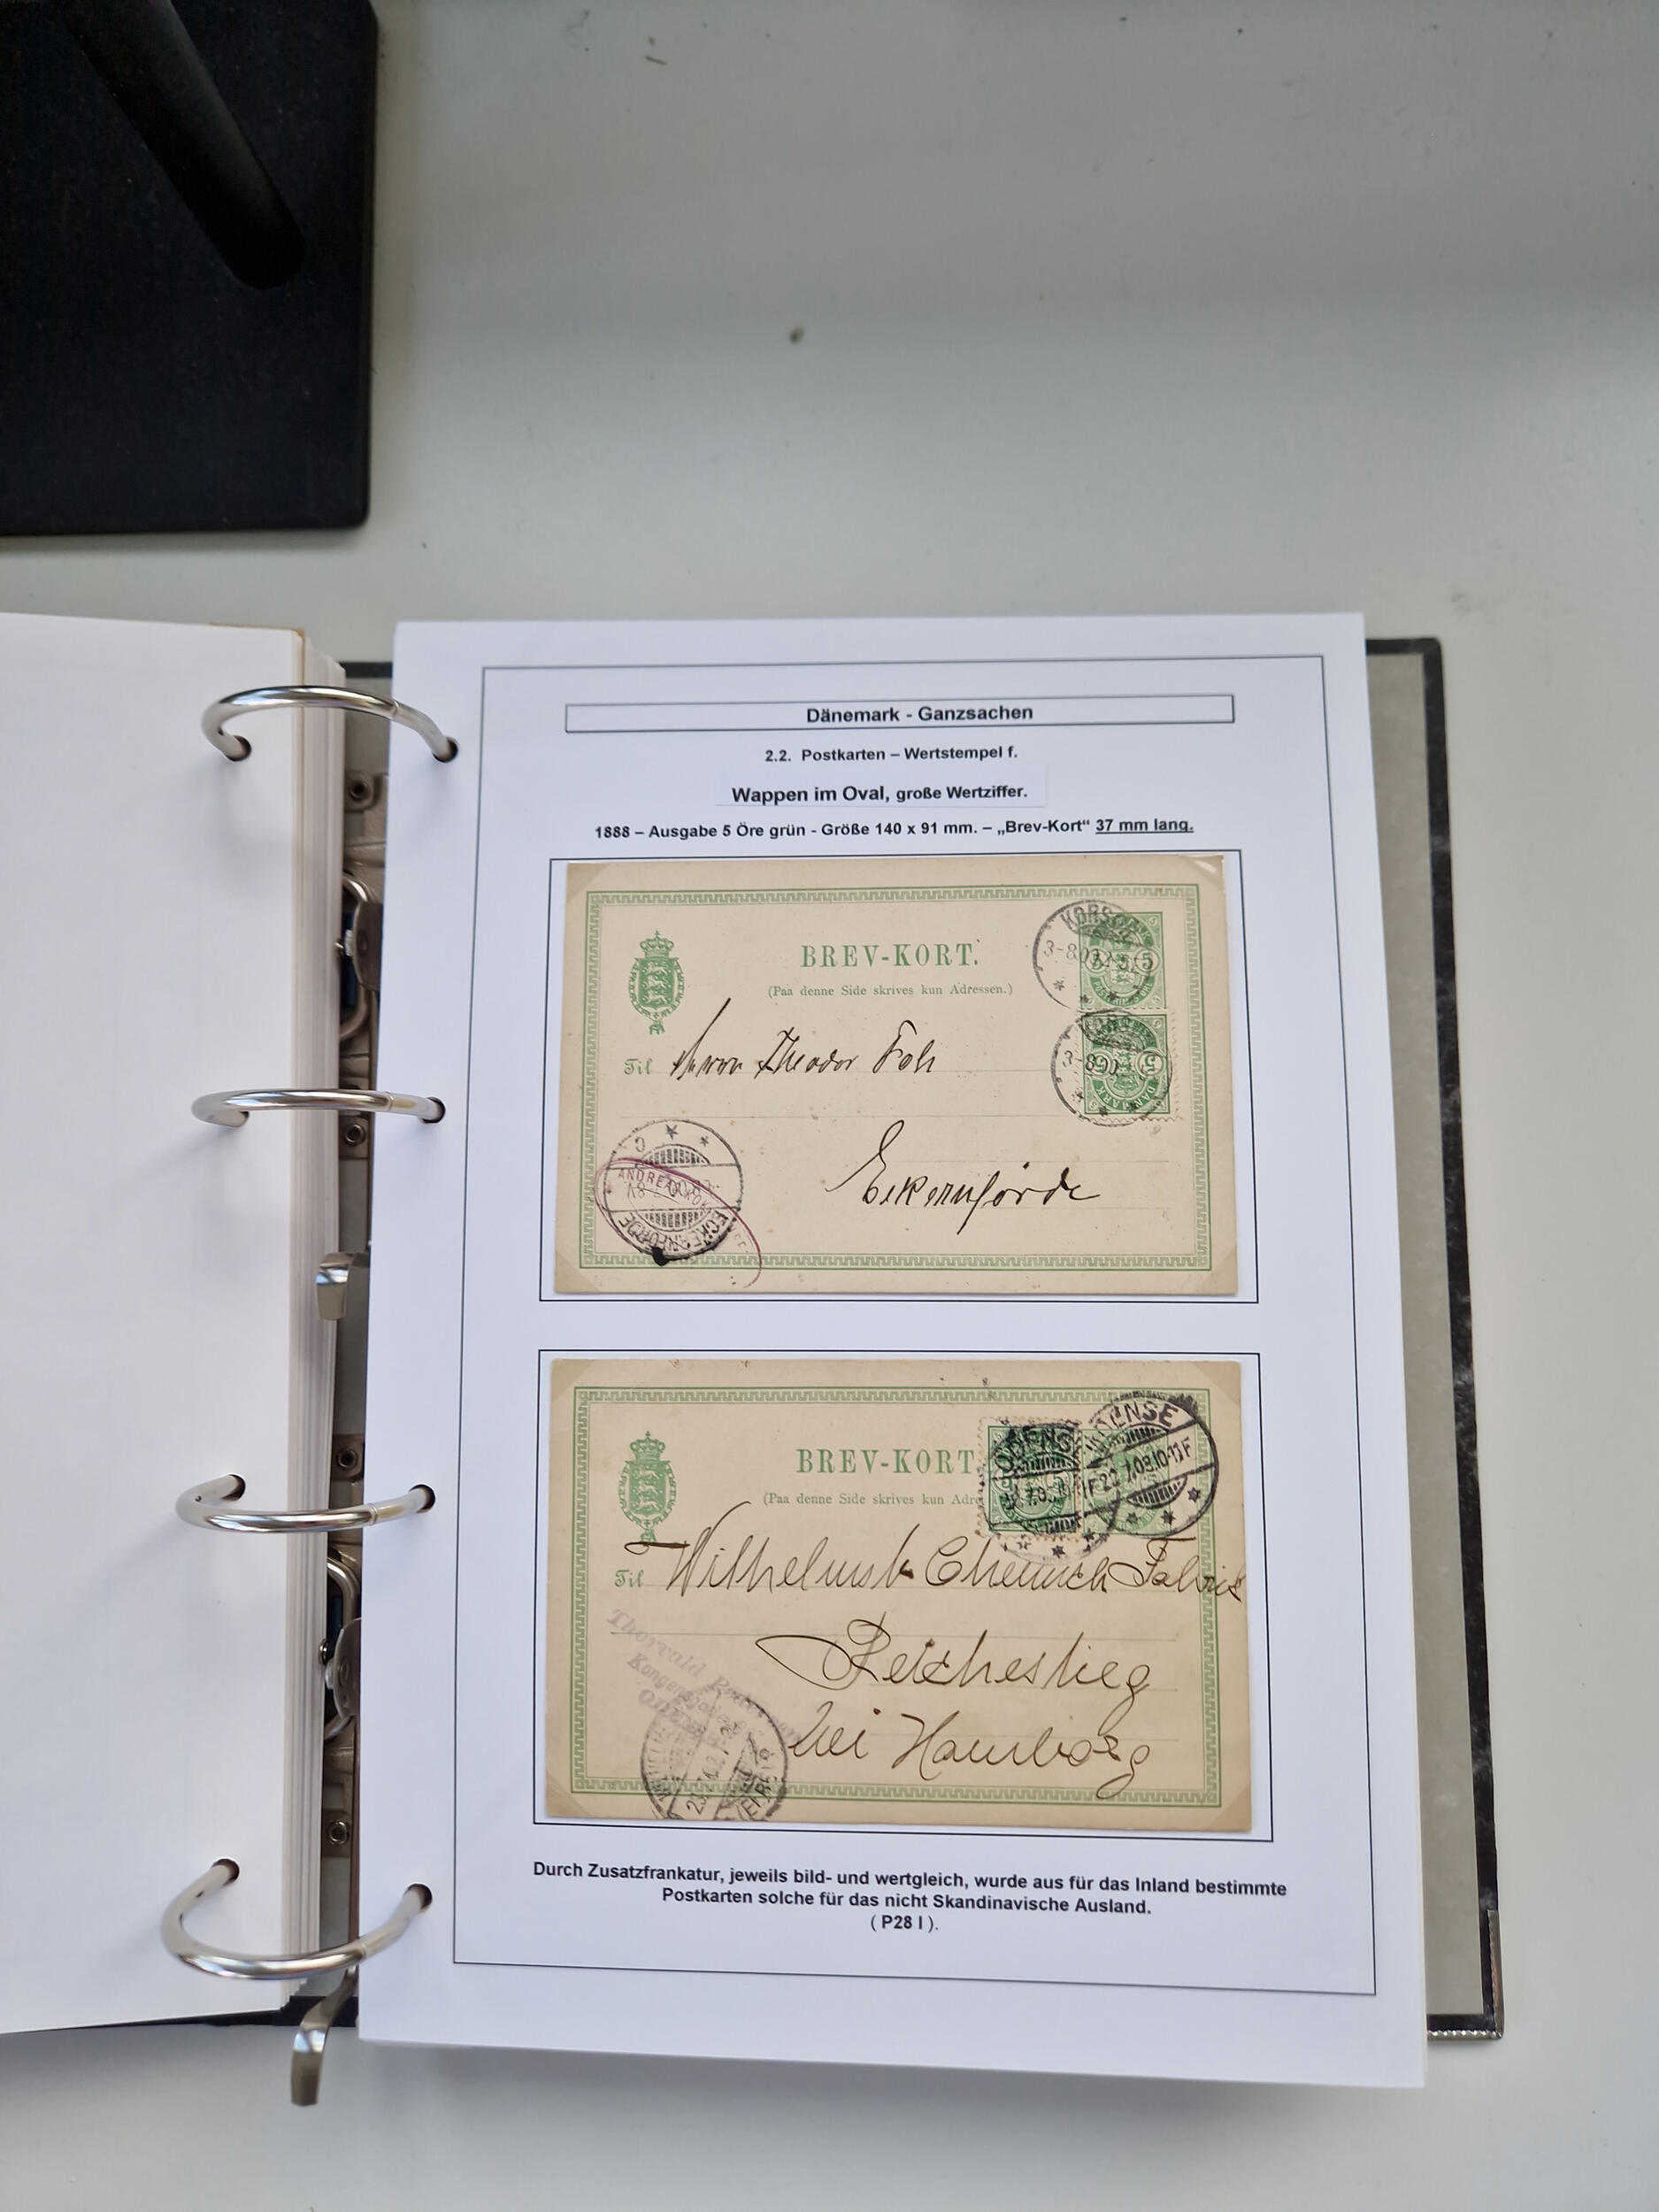 Dänemark - Ganzsachen
2.2. Postkarten – Wertstempel f.
Wappen im Oval, große Wertziffer.
1888 – Ausgabe 5 Öre grün - Größe 140 x 91 mm. – „Brev-Kort“ 37 mm lang.
BREV-KORT.
(Paa denne Side skrives kun Adressen.)
KORSØ
3-8
5
Til Herrn Theodor
5
DANMARK
Eckernförde
ANDREA
ECKERNFÖRDE
C
BREV-KORT
(Paa denne Side skrives kun Adre
ODENS
ODENSE
22 7.03.10-11F
Til Wilhelmsb Chemisch Fabrik
Reichestieg
bei Hamborg
Thorvald
Kongensgade
Durch Zusatzfrankatur, jeweils bild- und wertgleich, wurde aus für das Inland bestimmte
Postkarten solche für das nicht Skandinavische Ausland.
( P28 I ).